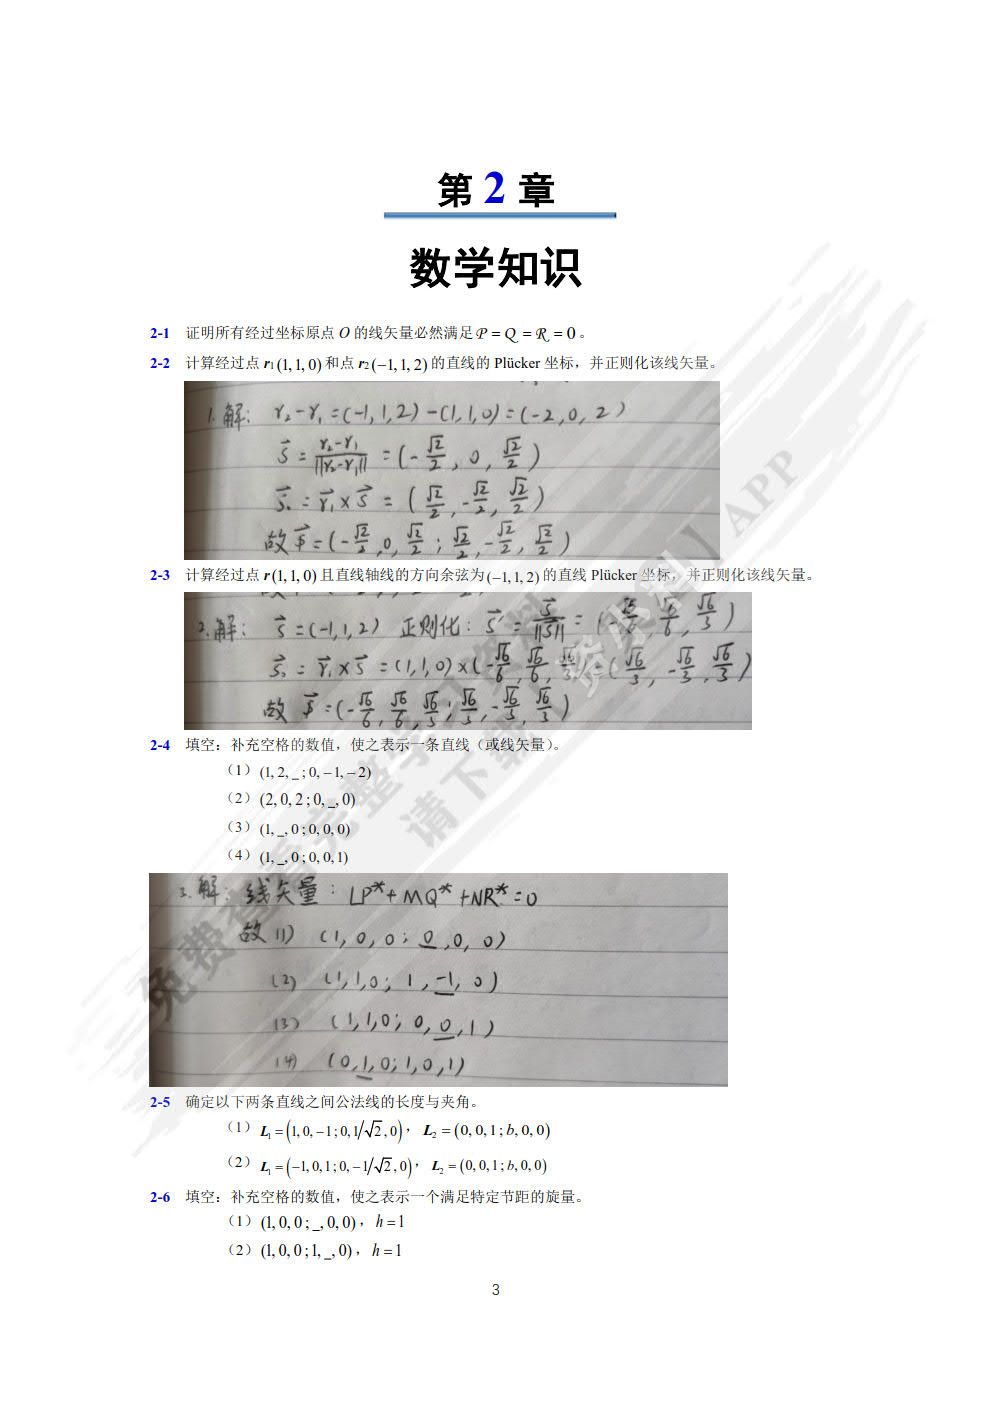 第 2 章
数学知识
2-1 证明所有经过坐标原点 O 的线矢量必然满足 P = Q = R = 0 。
2-2 计算经过点 r₁(1, 1, 0) 和点 r₂(−1, 1, 2) 的直线的 Plücker 坐标，并正则化该线矢量。
1.解: r₂-r₁=(-1,1,2)-(1,1,0)=(-2,0,2)
S⃗ = (r₂-r₁)/||r₂-r₁|| = (-√2/2, 0, √2/2)
S⃗₀ = r⃗₁×S⃗ = (√2/2, -√2/2, √2/2)
故 $⃗=(-√2/2, 0, √2/2; √2/2, -√2/2, √2/2)
2-3 计算经过点 r(1, 1, 0) 且直线轴线的方向余弦为 (−1, 1, 2) 的直线 Plücker 坐标，并正则化该线矢量。
2.解: S⃗=(-1,1,2) 正则化: S⃗' = S⃗/||S⃗|| = (-√6/6, √6/6, √6/3)
S⃗₀ = r⃗₁×S⃗ =(1,1,0)×(-√6/6, √6/6, √6/3)=(√6/3, -√6/3, √6/3)
故 $⃗=(-√6/6, √6/6, √6/3; √6/3, -√6/3, √6/3)
2-4 填空：补充空格的数值，使之表示一条直线（或线矢量）。
（1）(1, 2, _ ; 0, −1, −2)
（2）(2, 0, 2 ; 0, _, 0)
（3）(1, _, 0 ; 0, 0, 0)
（4）(1, _, 0 ; 0, 0, 1)
3.解: 线矢量: LP*+MQ*+NR*=0
故 (1) (1, 0, 0; 0, 0, 0)
(2) (1,1,0; 1, -1, 0)
(3) (1,1,0; 0, 0, 1)
(4) (0,1,0; 1,0,1)
2-5 确定以下两条直线之间公法线的长度与夹角。
（1）L₁ = (1, 0, −1 ; 0, 1/√2, 0)，L₂ = (0, 0, 1 ; b, 0, 0)
（2）L₁ = (−1, 0, 1 ; 0, −1/√2, 0)，L₂ = (0, 0, 1 ; b, 0, 0)
2-6 填空：补充空格的数值，使之表示一个满足特定节距的旋量。
（1）(1, 0, 0 ; _, 0, 0)，h = 1
（2）(1, 0, 0 ; 1, _, 0)，h = 1
3